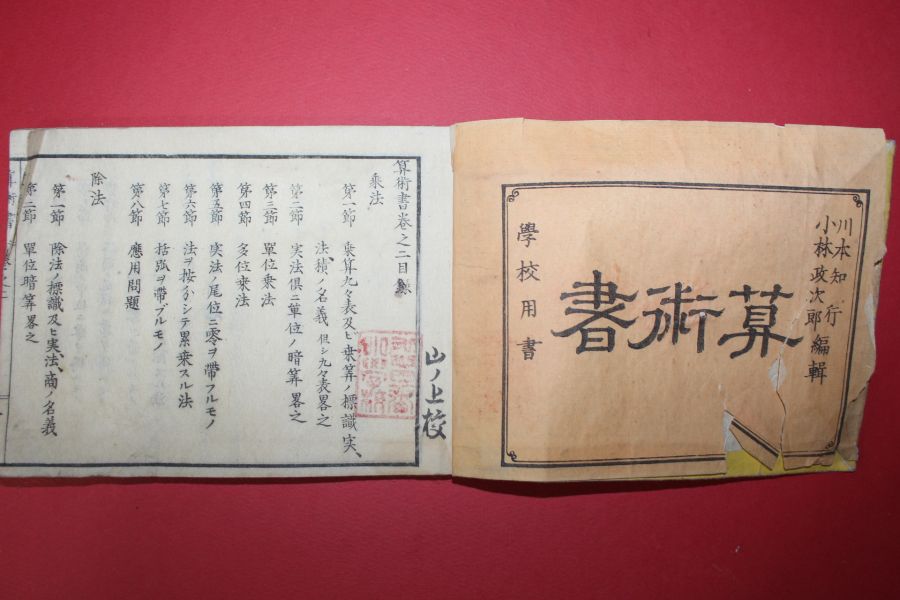 川本知行
小林政次郎 編輯
算術書
學校用書
山ノ上校
算術書巻之二目錄
乗法
第一節 乗算九々表及ヒ乗算ノ標識実、
法、積ノ名義 但シ九々表畧之
第二節 実法俱ニ單位ノ暗算畧之
第三節 單位乗法
第四節 多位乗法
第五節 実法ノ尾位ニ零ヲ帶フルモノ
第六節 法ヲ按分シテ累乗スル法
第七節 括弧ヲ帶ブルモノ
第八節 應用問題
除法
第一節 除法ノ標識及ヒ実、法、商ノ名義
第二節 單位暗算畧之